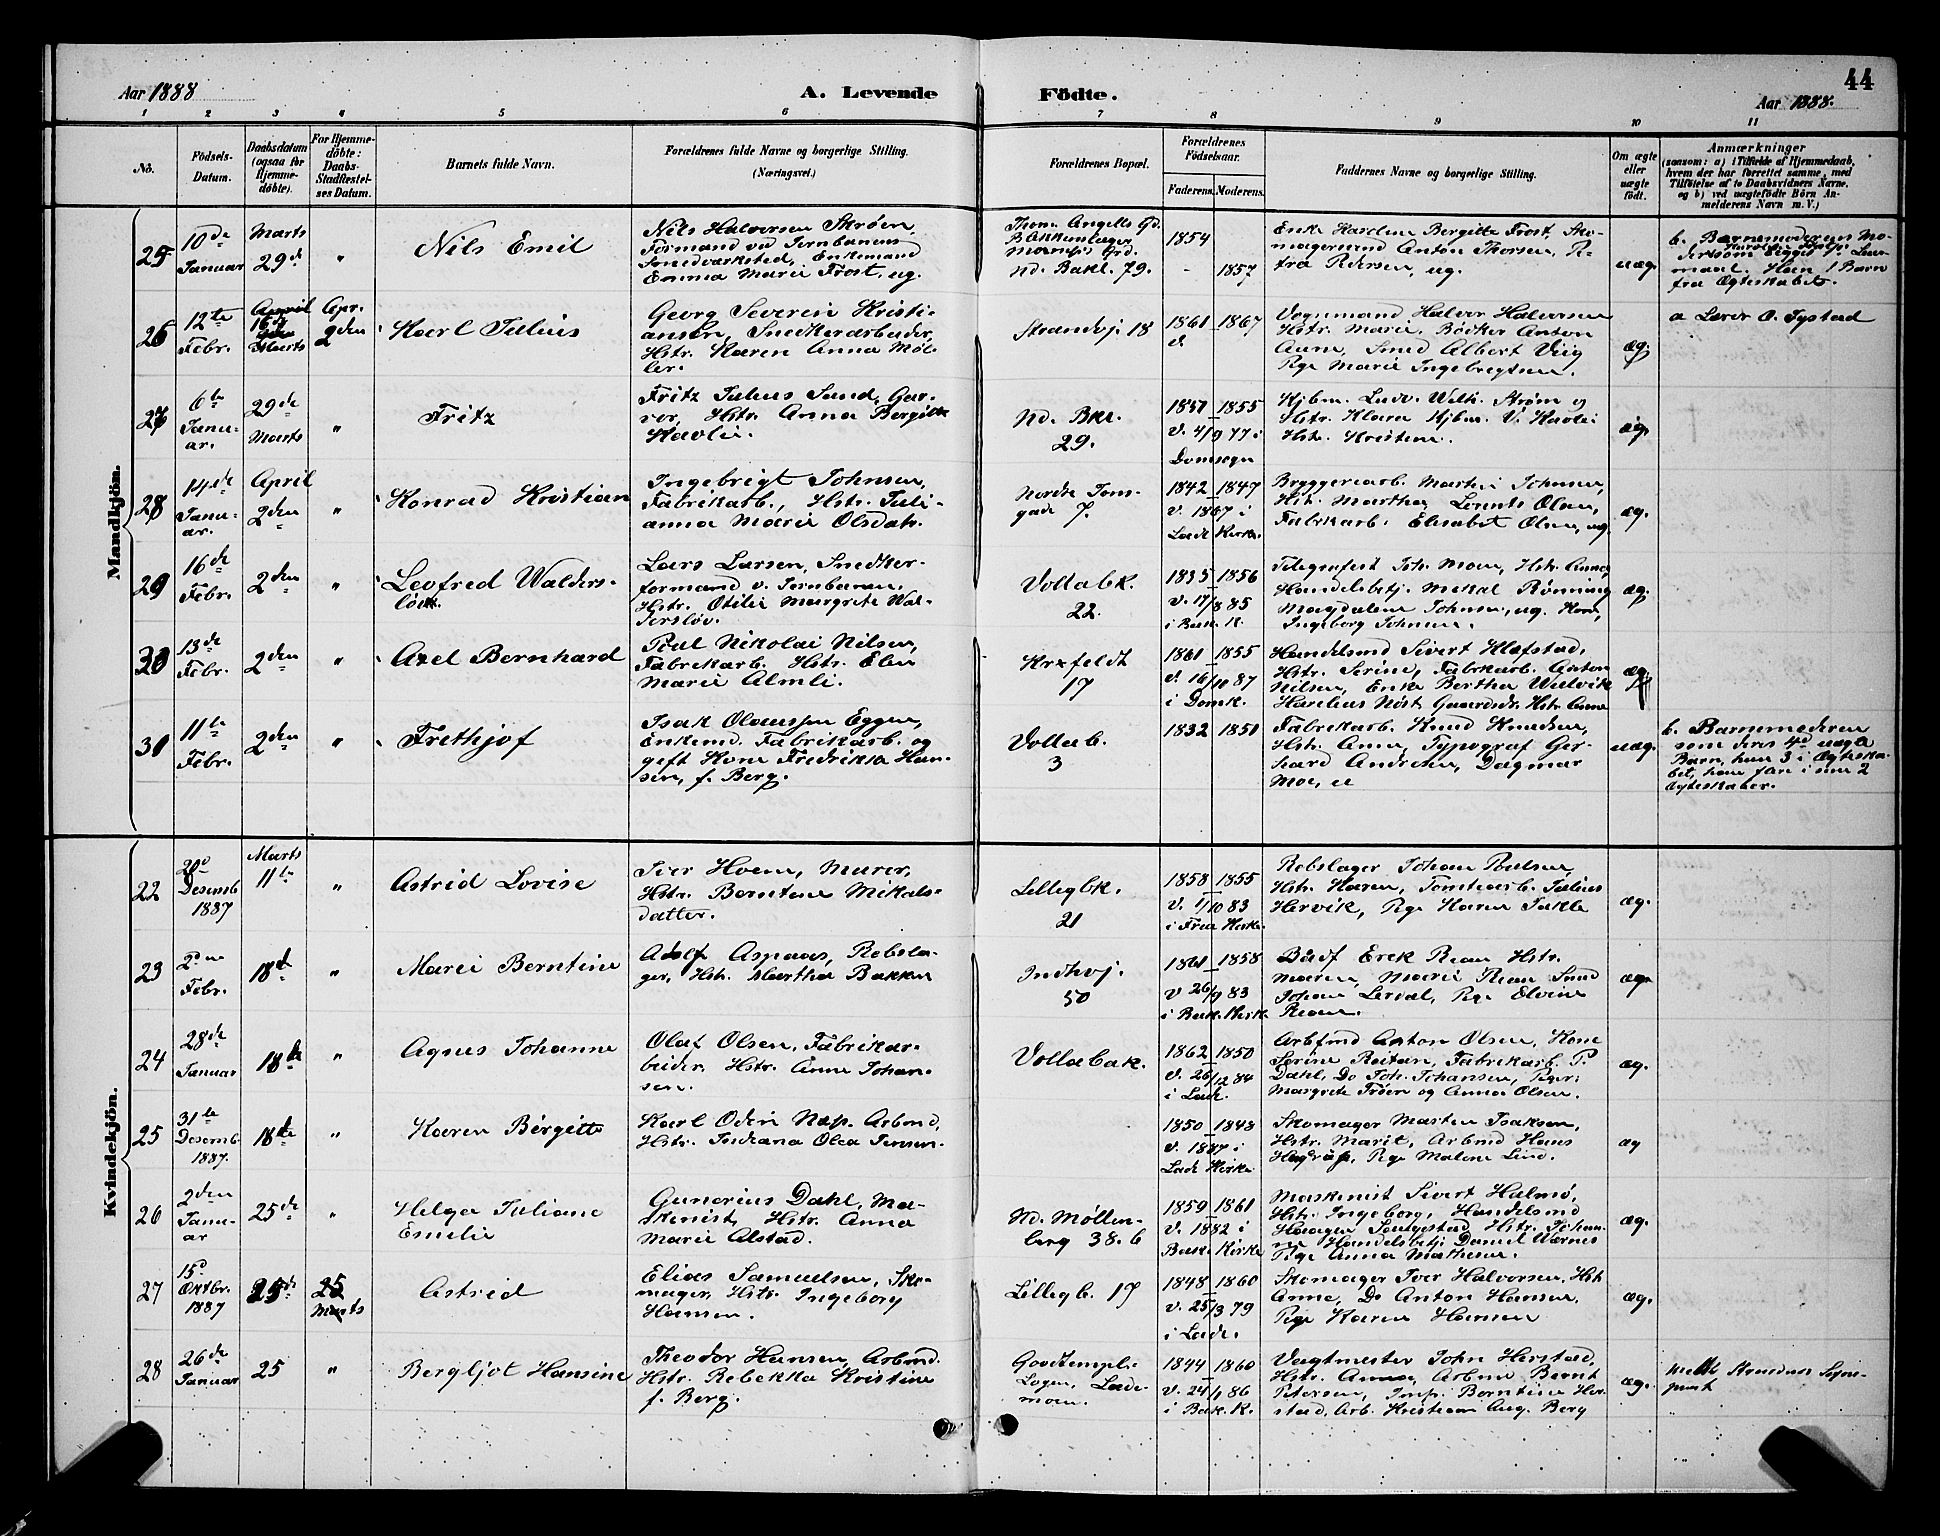 44
Aar 1888
A. Levende
Födte.
Aar 1888.
1 2 3 4 5 6 7 8 9 10 11
No.
Födsels-
Datum.
Daabsdatum
(ogsaa for
Hjemme-
döbte).
For Hjemme-
döbte:
Daabs-
Stadfæstel-
ses Datum.
Barnets fulde Navn.
Forældrenes fulde Navne og borgerlige Stilling.
(Næringsvei.)
Forældrenes Bopæl.
Forældrenes
Födselsaar.
Faderens. Moderens.
Faddernes Navne og borgerlige Stilling.
Om ægte
eller
uægte
født.
Anmærkninger
(saasom: a) i Tilfælde af Hjemmedaab,
hvem der har forrettet samme, med
Tilföielse af to Daabsvidners Navne,
og b) ved uægtefödte Börn An-
melderens Navn m. V.)
Mandkjön.
25
10de
Januar
Marts
29de
"
Nils Emil
Nils Halvorsen Skrøen,
Formand ved Jernbanens
Smedværksted, Enkemand
Emma Marie Frost, ug.
Thom. Angells Gd.
Nd. Bakl. 79.
1854
- 1857
Enke Karoline Bergitte Frost, Sko-
magersvend Anton Thorsen, P-
tra Pedersen, ug.
uæg.
b. Barnemoderens Mo-
fra Ægteskabet.
26
12te
Febr.
April
16de
Marts
Apr.
2den
Karl Julius
Georg Severin Kristi-
ansen, Snedkerarbeider,
Hstr. Karen Anna Møl-
ler.
Strandvj. 18
1861 - 1867
v.
Vognmand Halvor Halvorsen
Hstr. Marie. Bødker Anton
Aune, Smed Albert Viig
Pige Marie Ingebregtsen.
æg.
a Lærer O. Tystad
27
6te
Janu-
ar.
29de
Marts
"
Fritz
Fritz Julius Sund, Gar-
ver, Hstr. Anna Bergitte
Havlie.
Nd. Bkl.
29.
1857 - 1855
v. 4/9 77 i
Domsogn
Kjbm. Ludv. Wilh. Strøm og
Hstr. Klara Kjbm. V. Havlie
Hst. Kristine.
æg.
28
14de
Janu-
ar.
April
2den
"
Konrad Kristian
Ingebrigt Johnsen,
Fabrikarb., Hstr. Juli-
anna Marie Olsdatr.
Nordre Toms-
gade 7.
1842 - 1847
v. 1867 i
Lade Kirke.
Bryggeriarb. Martin Johnsen,
Hstr. Martha, Lornts Olsen,
Fabrikarb. Elisabet Olsen, ug.
æg.
29
16de
Febr.
2den
"
Leofred Walders-
löv.
Lars Larsen, Snedker-
formand v. Jernbanen,
Hstr. Otilie Margrete Wal-
dersløv.
Vollabk.
22.
1835 - 1856
v. 17/8 85
i Bak. K.
Telegrafist Joh. Moen, Hstr. Anna,
Handelsbetj. Mekal Rønning
Magdalene Johnsen, ug. Kone,
Ingeborg Johnsen.
æg.
30
13de
Febr.
2den
"
Axel Bernhard
Poul Nikolai Nilsen,
Fabrikarb. Hstr. Elen
Marie Almli.
Krefeldt
17
1861 - 1855
v. 16/10 87
i Domk.
Handelsmd Sivert Klefstad,
Hstr. Serine, Fabrkarb. Anton
Nilsen, Enke Bertha Wulvik
æg.
31
11te
Febr.
2den
"
Frethjof
Isak Olaussen Eggen,
Enkemd. Fabrikarb. og
gift Kone Fredrikka Han-
sen, f. Berg.
Vollab.
3
1832 1851
Fabrikarb. Knud Knudsen,
Hstr. Anne, Typograf Ger-
hard Andresen, Dagmar
Moe,
uæg.
b. Barnemoderen
som deres 4d uægte
Barn, hun 3 i Ægteska-
bet, han flere i sine 2
Ægteskaber.
Kvindekjön.
22
20d
Desemb
1887
Marts
11te
"
Astrid Lovise
Iver Hoem, Murer,
Hstr. Berntine Mikals-
datter.
Lillegbk.
21
1858 - 1855
v. 1/10 83
i Frue Kirke.
Rebslager Johan Poulsen,
Hstr. Karen, Tomtearb. Julius
Hervik, Pige Karen Takle
æg.
23
2den
Febr.
18d
"
Marie Berntine
Adolf Aspaas, Rebsla-
ger, Hstr. Martha Bakken
Indhvj.
50
1861 - 1858
v 26/9 83
i Bak. Kirk.
Erek Rean Hstr.
Maren, Marie Rean Smed
Johan Lerdal, Pige Elvine
Rean.
æg
24
28de
Januar
18de
"
Agnes Johanne
Olaf Olsen, Fabrikar-
beider, Hstr. Anne Johan-
sen.
Vollabak.
1862 - 1850
v. 26/12 84
i Lade.
Arbfmd Anton Olsen, Kone
Serine Reitan, Fabrikarb. P.
Dahl, Do Joh. Johansen, Piger:
Margrete Frøen og Anna Olsen.
æg.
25
31te
Desemb.
1887.
18de
"
Karen Birgitte
Karl Odin Næss. Arbmd,
Hstr. Indiana Olea Jensen.
1850 - 1848
v. 1887 i
Lade Kirke
Skomager Morten Isaksen,
Hstr. Marit, Arbmd Hans
Pige Malene Lind.
æg
26
2den
Janu-
ar
25de
"
Helga Juliane
Emelie
Gunerius Dahl, Ma-
skenist, Hstr. Anna
Marie Alstad.
Nd. Møllen-
berg 38. b
1859 - 1861
v. 1882 i
Bak. Kirke
Maskenist Sivert Halmø,
Hstr. Ingeborg, Handelsmd
Haagen Hstr. Johan-
ne, Handelsbetj. Daniel Wærnes
Pige Anna Mathesen.
æg.
27
15d
Oktbr.
1887
25de
25
Marts
Astrid
Elias Samuelsen, Sko-
mager, Hstr. Ingeborg
Hansen.
Lillegb. 17
1848 - 1860
v. 25/3 79
i Lade.
Skomager Iver Halvorsen, Hst.
Anne, Do Anton Hansen.
Pige Karen Hansen
æg.
28
26de
Januar
25
"
Bergljot Hansine
Theodor Hansen, Arbmd.
Hstr. Rebekka Kristine
f. Berg.
Goodtempl.
Logen, Lade-
moen.
1844 - 1860
v. 24/1 86
i Bak. K.
Vagtmester John Herstad,
Hstr. Anna, Arbmd Bernt
Petersen, Jmf. Berntine Her-
stad, Arb. Kristian Aug. Berg
æg.